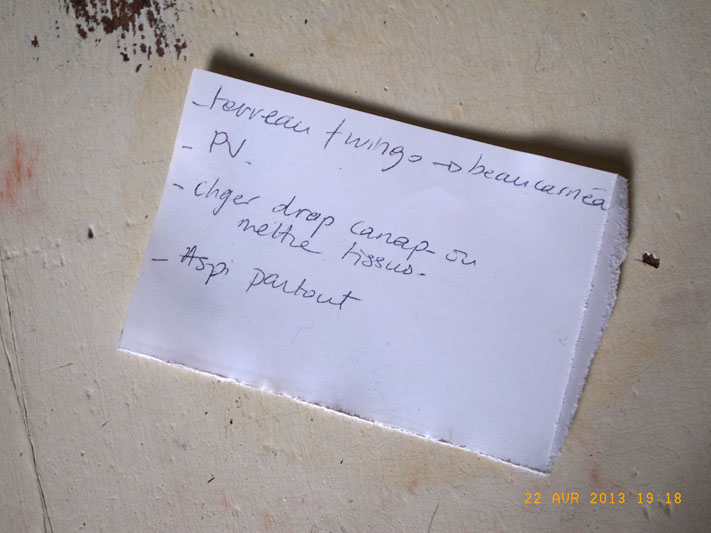 - terreau twingo → beaucarnéa
- PV.
- chger drap canap - ou
mettre tissus -
- Aspi partout
22 AVR 2013 19:18